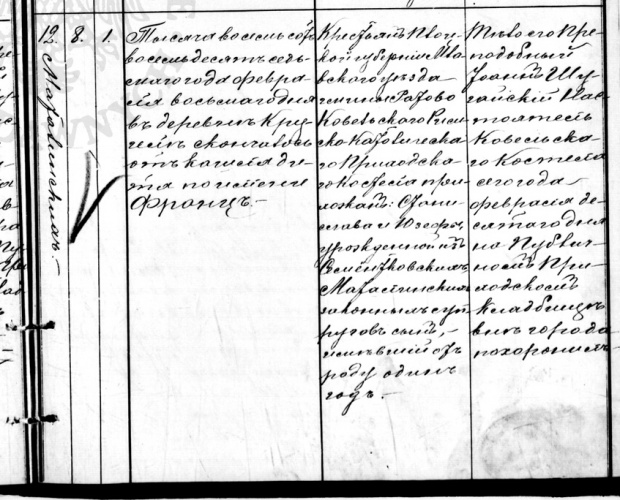 12.
Магалинскихъ.—
8.
1.
Тысяча восемьсотъ
восемьдесятъ седь-
маго года февра-
ля восьмаго дня
въ деревнѣ Кри-
скончалось
отъ кашля ди-
тя по имени
Францъ.—
Крестьянъ
кой губерніи
вскаго уѣзда
гмины
Ковельскаго Рим-
ско Католическа-
го Приходска-
го Костела при-
хожанъ: Стани-
слава и Юзефы,
урожденной изъ
законныхъ суп-
руговъ сынъ,—
имѣвшій отъ
роду одинъ
годъ.—
Тѣло его Пре-
подобный
Іоаннъ Шу-
гайскій Нас-
тоятель
Ковельска-
го Костела
сего года
февраля де-
сятаго дня
на Публич-
номъ При-
ходскомъ
Кладбищѣ
внѣ города
похоронилъ.